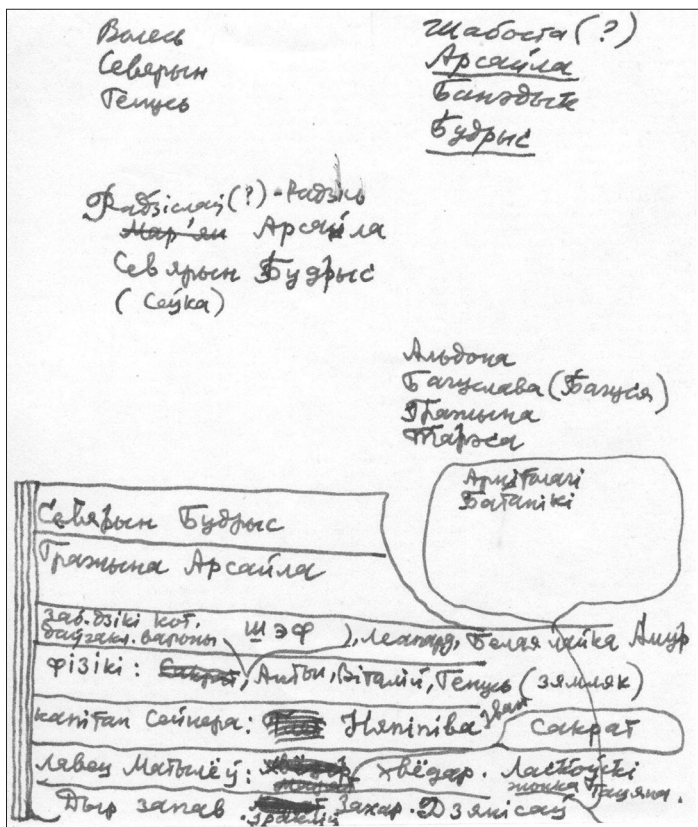 Волесь
Севярын
Генусь
Шабоста (?)
Арсайла
Банэдык
Будрыс
Радзіслаў (?) - Радзік
Мар'ян Арсайла
Севярын Будрыс
(Сеўка)
Альдона
Багуслава (Багуся)
Гражына
Тарэса
Арнітолагі
Батанікі
Севярын Будрыс
Гражына Арсайла
заб. дзікі кот.
даўгакл. вароны ШЭФ ), леапард, Белая чайка Амур
фізікі: Сакрат, Антып, Віталій, Генусь (зямляк)
капітан сейнера: Няпіпіва Іван
Сакрат
лавец Матылёў: Хвёдар. Ласкоўскі
жонка Тацяна.
Дыр запав Захар. Дзянісаў